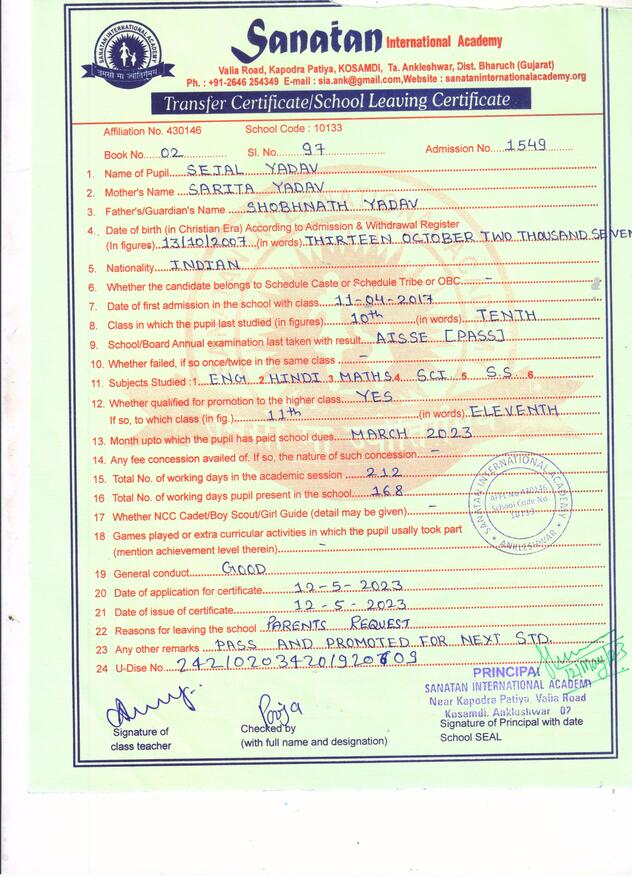 SANATAN INTERNATIONAL ACADEMY
तमसो मा ज्योतिर्गमय
Sanatan International Academy
Valia Road, Kapodra Patiya, KOSAMDI, Ta. Ankleshwar, Dist. Bharuch (Gujarat)
Ph. : +91-2646 254349 E-mail : sia.ank@gmail.com,Website : sanataninternationalacademy.org
Transfer Certificate/School Leaving Certificate
Affiliation No. 430146 School Code : 10133
Book No. 02 Sl. No. 97 Admission No. 1549
1. Name of Pupil SEJAL YADAV
2. Mother's Name SARITA YADAV
3. Father's/Guardian's Name SHOBHNATH YADAV
4. Date of birth (in Christian Era) According to Admission & Withdrawal Register
(In figures) 13/10/2007 (in words) THIRTEEN OCTOBER TWO THOUSAND SEVEN
5. Nationality INDIAN
6. Whether the candidate belongs to Schedule Caste or Schedule Tribe or OBC -
7. Date of first admission in the school with class 11-04-2017
8. Class in which the pupil last studied (in figures) 10th (in words) TENTH
9. School/Board Annual examination last taken with result AISSE [PASS]
10. Whether failed, if so once/twice in the same class -
11. Subjects Studied : 1. ENG 2. HINDI 3. MATHS 4. SCI 5. S.S 6.
12. Whether qualified for promotion to the higher class YES
If so, to which class (in fig.) 11th (in words) ELEVENTH
13. Month upto which the pupil has paid school dues MARCH 2023
14. Any fee concession availed of. If so, the nature of such concession -
15. Total No. of working days in the academic session 212
16 Total No. of working days pupil present in the school 168
17 Whether NCC Cadet/Boy Scout/Girl Guide (detail may be given) -
18 Games played or extra curricular activities in which the pupil usally took part
(mention achievement level therein) -
SANATAN INTERNATIONAL ACADEMY
AFFI. No 430146
School Code No.
10133
ANKLESHWAR
19 General conduct GOOD
20 Date of application for certificate 12-5-2023
21 Date of issue of certificate 12-5-2023
22 Reasons for leaving the school PARENTS REQUEST
23 Any other remarks PASS AND PROMOTED FOR NEXT STD.
24 U-Dise No.
PRINCIPAL
SANATAN INTERNATIONAL ACADEMY
Near Kapodra Patiya, Valia Road
Kosamdi, Ankleshwar 02
Pooja
Signature of
class teacher
Checked by
(with full name and designation)
Signature of Principal with date
School SEAL